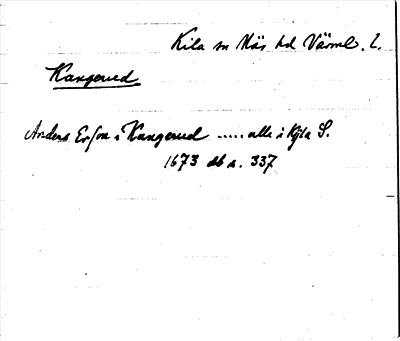 Kila sn Näs hd Värml. l.
Kangerud
Anders Ersson i Kangerud ..... alle i Kyla S.
1673 db s. 337